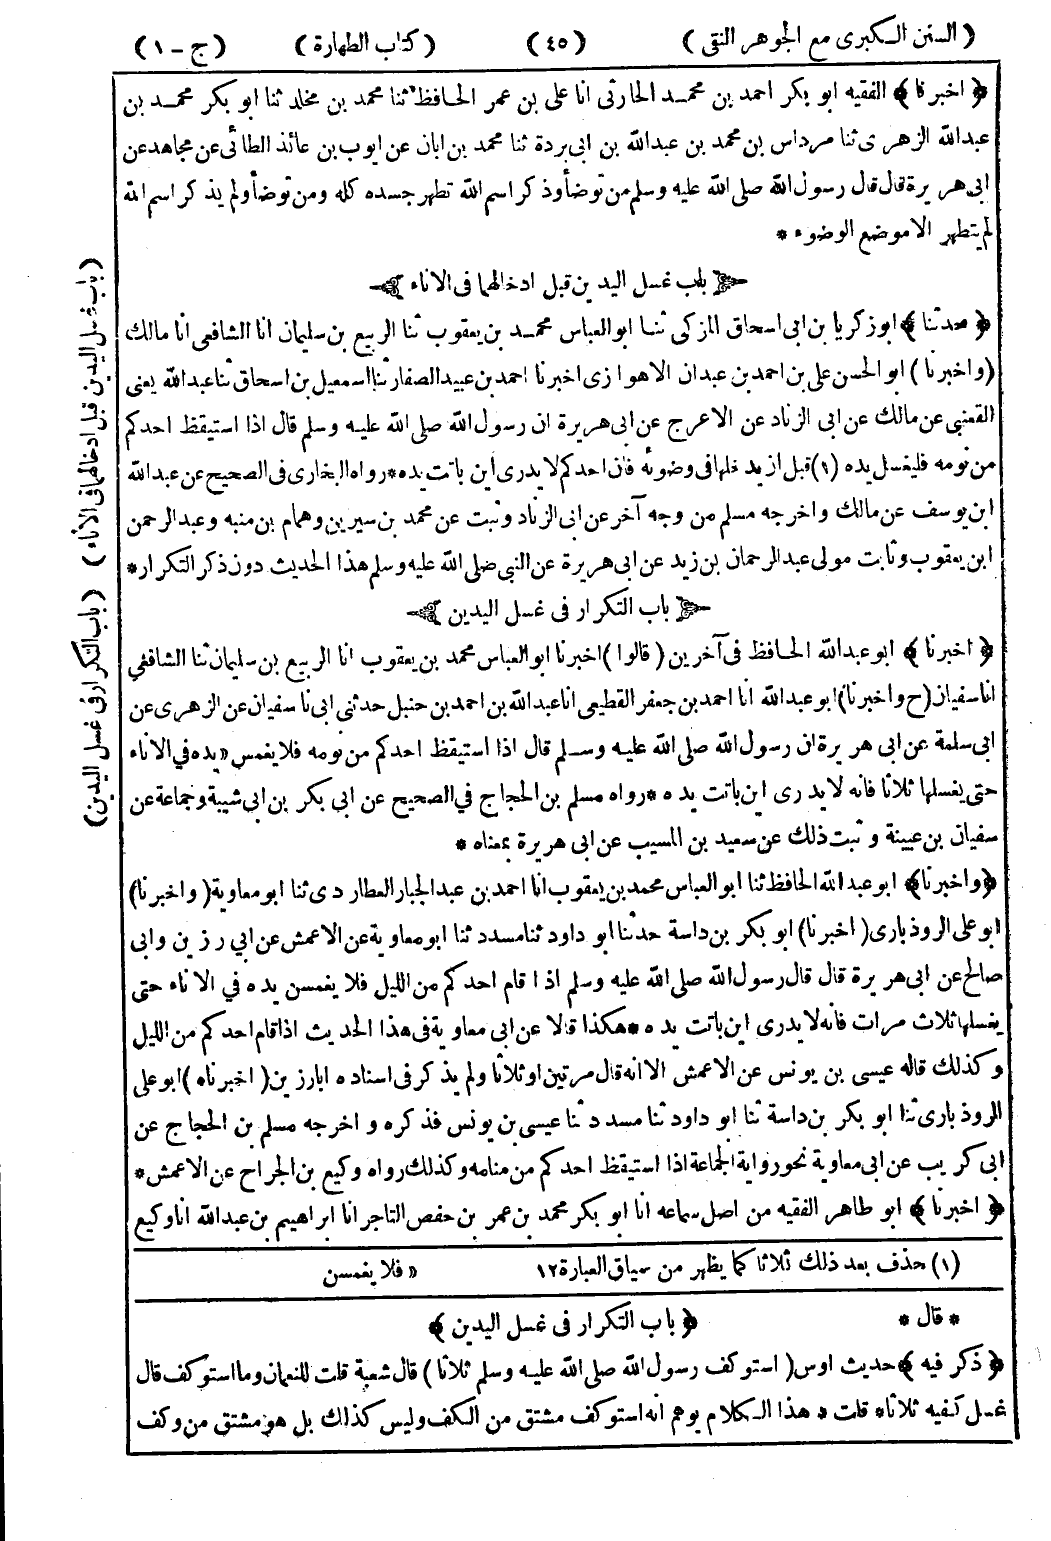 (السنن الكبرى مع الجوهر النقى) (٤٥) (كتاب الطهارة) (ج - ١)
﴿اخبرنا﴾ الفقيه ابو بكر احمد بن محمد الحارثى انا على بن عمر الحافظ ثنا محمد بن مخلد ثنا ابو بكر محمد بن
عبدالله الزهرى ثنا مرداس بن محمد بن عبدالله بن ابى بردة ثنا محمد بن ابان عن ايوب بن عائذ الطائى عن مجاهد عن
ابى هريرة قال قال رسول الله صلى الله عليه وسلم من توضأ وذكر اسم الله تطهر جسده كله ومن توضأ ولم يذكر اسم الله
لم يتطهر الا موضع الوضوء *
باب غسل اليدين قبل ادخالهما فى الاناء
﴿حدثنا﴾ ابو زكريا بن ابى اسحاق المزكى ثنا ابو العباس محمد بن يعقوب ثنا الربيع بن سليمان انا الشافعى انا مالك
(واخبرنا) ابو الحسن على بن احمد بن عبدان الاهوازى اخبرنا احمد بن عبيد الصفار ثنا اسمعيل بن اسحاق ثنا عبدالله يعنى
القعنبى عن مالك عن ابى الزناد عن الاعرج عن ابى هريرة ان رسول الله صلى الله عليه وسلم قال اذا استيقظ احدكم
من نومه فليغسل يده (١) قبل ان يدخلها فى وضوئه فان احدكم لا يدرى اين باتت يده * رواه البخارى فى الصحيح عن عبدالله
ابن يوسف عن مالك واخرجه مسلم من وجه آخر عن ابى الزناد وثبت عن محمد بن سيرين وهمام بن منبه وعبدالرحمن
ابن يعقوب وثابت مولى عبدالرحمان بن زيد عن ابى هريرة عن النبى صلى الله عليه وسلم هذا الحديث دون ذكر التكرار *
باب التكرار فى غسل اليدين
﴿اخبرنا﴾ ابو عبدالله الحافظ فى آخرين (قالوا) اخبرنا ابو العباس محمد بن يعقوب انا الربيع بن سليمان ثنا الشافعي
انا سفيان (ح واخبرنا) ابو عبدالله انا احمد بن جعفر القطيعى انا عبدالله بن احمد بن حنبل حدثنى ابى نا سفيان عن الزهرى عن
ابى سلمة عن ابى هريرة ان رسول الله صلى الله عليه وسلم قال اذا استيقظ احدكم من نومه فلا يغمس « يده في الاناء
حتى يغسلها ثلاثا فانه لا يدرى اين باتت يده * رواه مسلم بن الحجاج في الصحيح عن ابى بكر بن ابى شيبة وجماعة عن
سفيان بن عيينة وثبت ذلك عن سعيد بن المسيب عن ابى هريرة بمعناه *
﴿واخبرنا﴾ ابو عبدالله الحافظ ثنا ابو العباس محمد بن يعقوب انا احمد بن عبدالجبار العطاردى ثنا ابو معاوية (واخبرنا)
ابو على الروذبارى (اخبرنا) ابو بكر بن داسة حدثنا ابو داود ثنا مسدد ثنا ابو معاوية عن الاعمش عن ابي رزين وابى
صالح عن ابى هريرة قال قال رسول الله صلى الله عليه وسلم اذا قام احدكم من الليل فلا يغمسن يده في الاناء حتى
يغسلها ثلاث مرات فانه لا يدرى اين باتت يده * هكذا قالا عن ابى معاوية فى هذا الحديث اذا قام احدكم من الليل
وكذلك قاله عيسى بن يونس عن الاعمش الا انه قال مرتين او ثلاثا ولم يذكر فى اسناده ابارزين (اخبرناه) ابو على
الروذبارى ثنا ابو بكر بن داسة ثنا ابو داود ثنا مسدد ثنا عيسى بن يونس فذكره واخرجه مسلم بن الحجاج عن
ابى كريب عن ابى معاوية نحو رواية الجماعة اذا استيقظ احدكم من منامه وكذلك رواه وكيع بن الجراح عن الاعمش *
﴿اخبرنا﴾ ابو طاهر الفقيه من اصل سماعه انا ابو بكر محمد بن عمر بن حفص التاجر انا ابراهيم بن عبدالله انا وكيع
(١) حذف بعد ذلك ثلاثا كما يظهر من سياق العبارة ١٢ « فلا يغمسن
* قال * ﴿باب التكرار فى غسل اليدين﴾
﴿ذكر فيه﴾ حديث اوس (استوكف رسول الله صلى الله عليه وسلم ثلاثا) قال شعبة قلت للنعمان وما استوكف قال
غسل كفيه ثلاثا * قلت * هذا الكلام يوهم انه استوكف مشتق من الكف وليس كذلك بل هو مشتق من وكف
(باب غسل اليدين قبل ادخالهما فى الاناء)
(باب التكرار فى غسل اليدين)